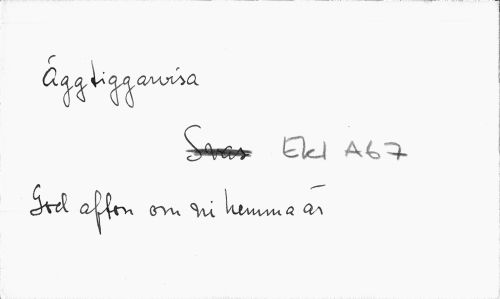 Äggtiggarvisa
Svar Ekl A67
God afton om ni hemma är